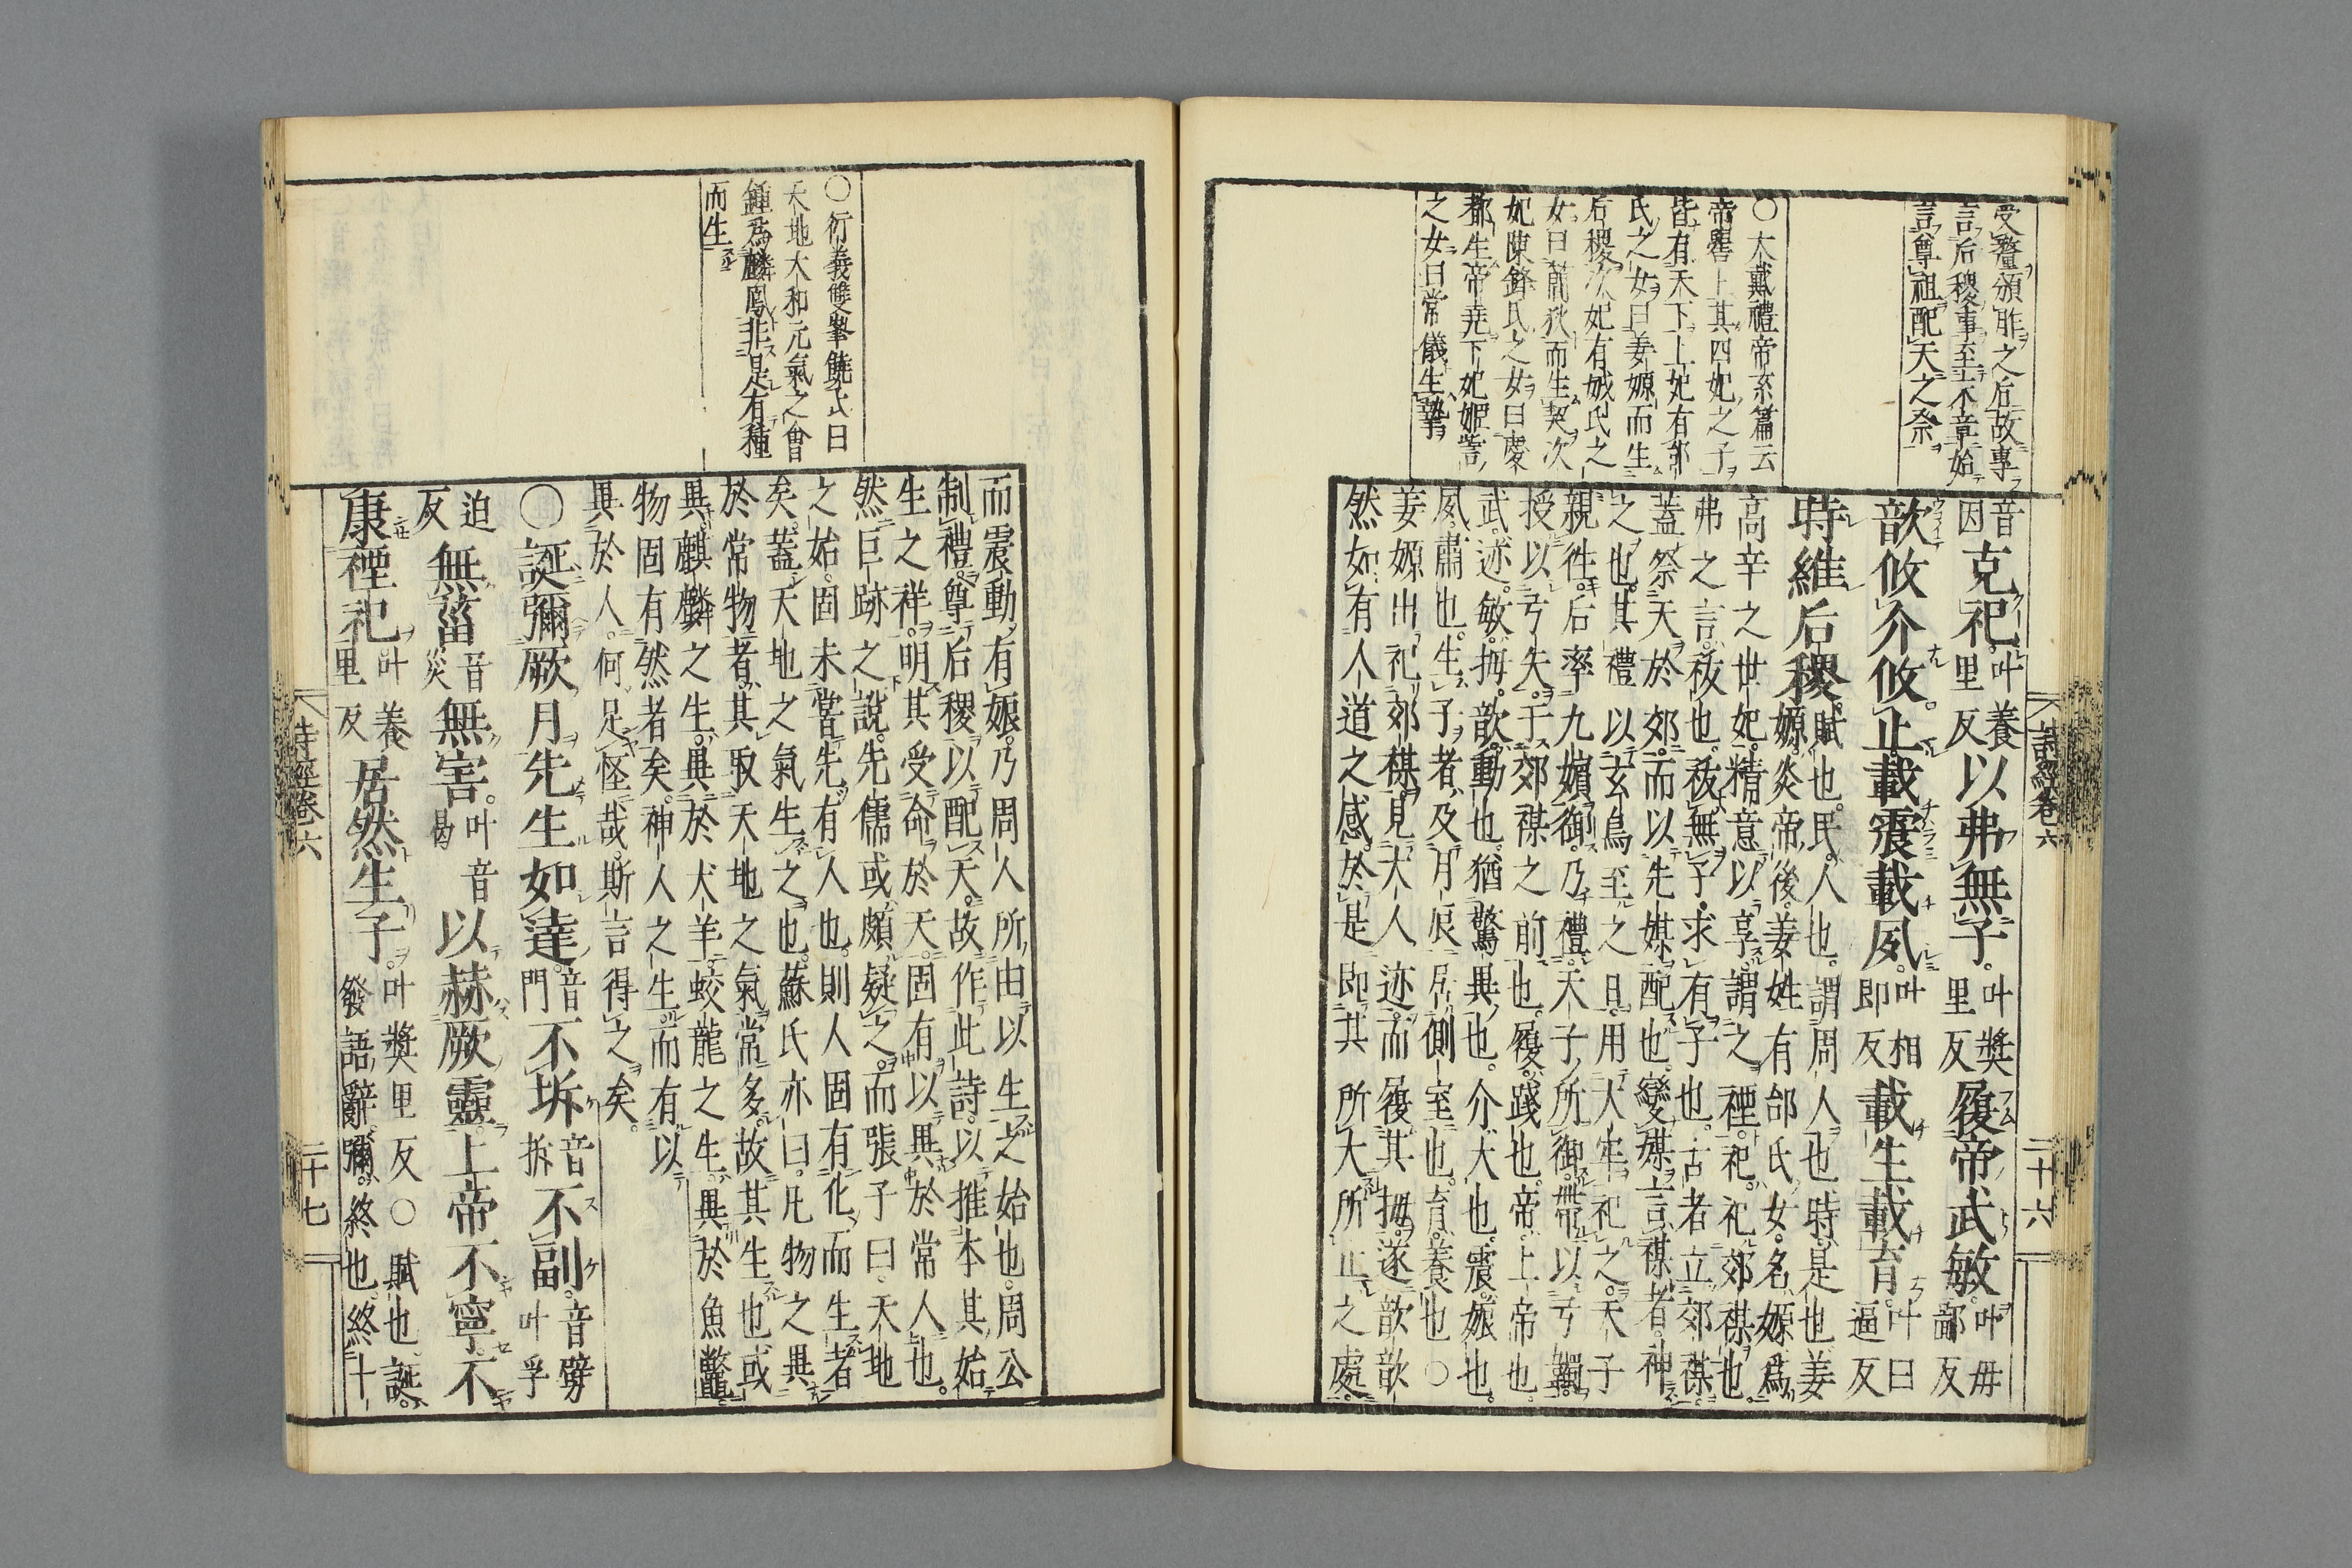 受釐頒胙之后故專
言后稷事至卒章始
言尊祖配天之祭
○大戴禮帝系篇云
帝嚳上其四妃之子
皆有天下上妃有邰
氏之女曰姜嫄而生
后稷次妃有娀氏之
女曰簡狄而生契次
妃陳鋒氏之女曰慶
都生帝堯下妃娵訾
之女曰常儀生摯
音因克祀叶養里反以弗無子叶獎里反履帝武敏叶母鄙反
歆攸介攸止載震載夙叶相即反載生載育叶曰逼反
時維后稷賦也民人也謂周人也時是也姜
嫄炎帝後姜姓有邰氏女名嫄爲
高辛之世妃精意以享謂之禋祀祀郊禖也
弗之言祓也祓無子求有子也古者立郊禖
蓋祭天於郊而以先媒配也變媒言禖者神
之也其禮以玄鳥至之日用大牢祀之天子
親徃后率九嬪御乃禮天子所御帶以弓韣
授以弓矢于郊禖之前也履踐也帝上帝也
武迹敏拇歆動也猶驚異也介大也震娠也
夙肅也生子者及月辰居側室也育養也○
姜嫄出祀郊禖見大人迹而履其拇遂歆歆
然如有人道之感於是即其所大所止之處
詩經卷六
二十六
○衍義雙峯饒氏曰
天地大和元氣之會
鍾爲麟鳳非是有種
而生
而震動有娠乃周人所由以生之始也周公
制禮尊后稷以配天故作此詩以推本其始
生之祥明其受命於天固有以異於常人也
然巨跡之說先儒或頗疑之而張子曰天地
之始固未嘗先有人也則人固有化而生者
矣蓋天地之氣生之也蘇氏亦曰凡物之異
於常物者其取天地之氣常多故其生也或
異麒麟之生異於犬羊蛟龍之生異於魚鼈
物固有然者矣神人之生而有以
異於人何足怪哉斯言得之矣
○誕彌厥月先生如達音門不坼音拆不副音劈叶孚
迫反無菑音災無害叶音曷以赫厥靈上帝不寧不
康禋祀叶養里反居然生子叶獎里反○賦也誕
發語辭彌終也終十
詩經卷六
二十七